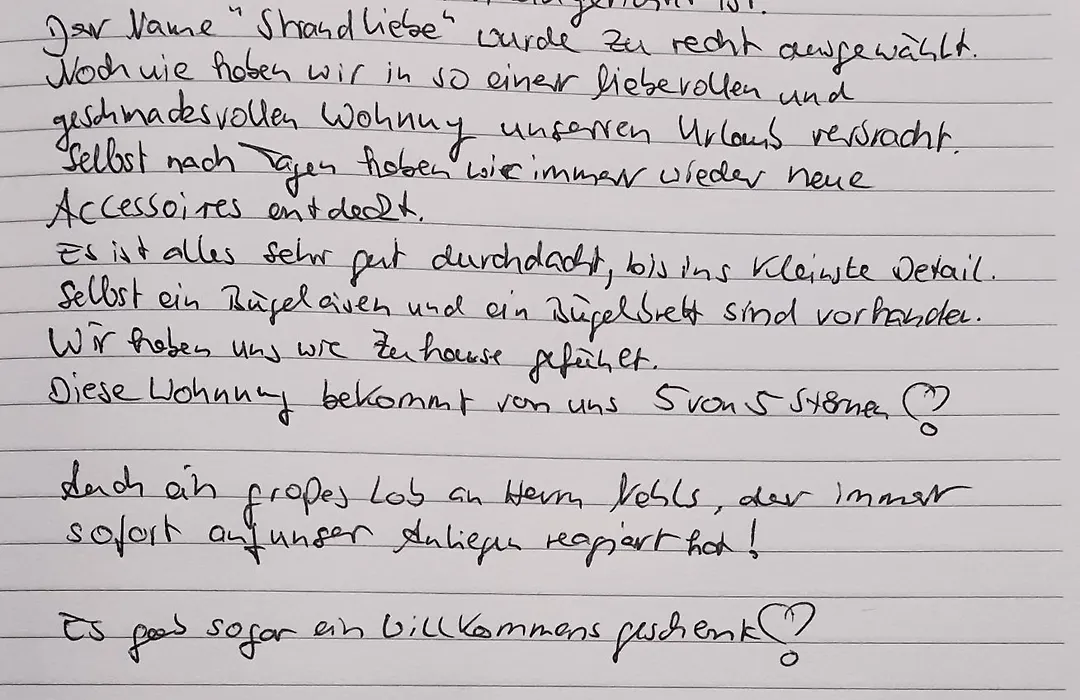 ist.
Der Name "Strandliebe" wurde zu recht ausgewählt.
Noch nie haben wir in so einer liebevollen und
geschmacksvollen Wohnung unseren Urlaub verbracht.
Selbst nach Tagen haben wir immer wieder neue
Accessoires entdeckt.
Es ist alles sehr gut durchdacht, bis ins kleinste Detail.
Selbst ein Bügeleisen und ein Bügelbrett sind vorhanden.
Wir haben uns wie zu hause gefühlt.
Diese Wohnung bekommt von uns 5 von 5 Sternen
Auch ein großes Lob an Herrn, der immer
sofort auf unser Anliegen reagiert hat!
Es gab sogar ein Willkommensgeschenk